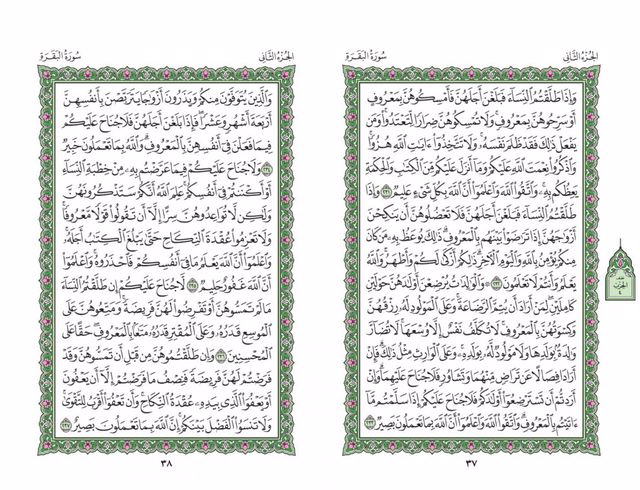 الجزء الثاني
سورة البقرة
وَإِذَا طَلَّقْتُمُ ٱلنِّسَآءَ فَبَلَغْنَ أَجَلَهُنَّ فَأَمْسِكُوهُنَّ بِمَعْرُوفٍ
أَوْ سَرِّحُوهُنَّ بِمَعْرُوفٍ وَلَا تُمْسِكُوهُنَّ ضِرَارًا لِّتَعْتَدُوا۟ وَمَن
يَفْعَلْ ذَٰلِكَ فَقَدْ ظَلَمَ نَفْسَهُۥ وَلَا تَتَّخِذُوٓا۟ ءَايَٰتِ ٱللَّهِ هُزُوًا
وَٱذْكُرُوا۟ نِعْمَتَ ٱللَّهِ عَلَيْكُمْ وَمَآ أَنزَلَ عَلَيْكُم مِّنَ ٱلْكِتَٰبِ وَٱلْحِكْمَةِ
يَعِظُكُم بِهِۦ وَٱتَّقُوا۟ ٱللَّهَ وَٱعْلَمُوٓا۟ أَنَّ ٱللَّهَ بِكُلِّ شَىْءٍ عَلِيمٌ ٢٣١ وَإِذَا
طَلَّقْتُمُ ٱلنِّسَآءَ فَبَلَغْنَ أَجَلَهُنَّ فَلَا تَعْضُلُوهُنَّ أَن يَنكِحْنَ
أَزْوَٰجَهُنَّ إِذَا تَرَٰضَوْا۟ بَيْنَهُم بِٱلْمَعْرُوفِ ذَٰلِكَ يُوعَظُ بِهِۦ مَن كَانَ
مِنكُمْ يُؤْمِنُ بِٱللَّهِ وَٱلْيَوْمِ ٱلْءَاخِرِ ذَٰلِكُمْ أَزْكَىٰ لَكُمْ وَأَطْهَرُ وَٱللَّهُ
يَعْلَمُ وَأَنتُمْ لَا تَعْلَمُونَ ٢٣٢ وَٱلْوَٰلِدَٰتُ يُرْضِعْنَ أَوْلَٰدَهُنَّ حَوْلَيْنِ
كَامِلَيْنِ لِمَنْ أَرَادَ أَن يُتِمَّ ٱلرَّضَاعَةَ وَعَلَى ٱلْمَوْلُودِ لَهُۥ رِزْقُهُنَّ
وَكِسْوَتُهُنَّ بِٱلْمَعْرُوفِ لَا تُكَلَّفُ نَفْسٌ إِلَّا وُسْعَهَا لَا تُضَآرَّ
وَٰلِدَةٌۢ بِوَلَدِهَا وَلَا مَوْلُودٌ لَّهُۥ بِوَلَدِهِۦ وَعَلَى ٱلْوَارِثِ مِثْلُ ذَٰلِكَ فَإِنْ
أَرَادَا فِصَالًا عَن تَرَاضٍ مِّنْهُمَا وَتَشَاوُرٍ فَلَا جُنَاحَ عَلَيْهِمَا وَإِنْ
أَرَدتُّمْ أَن تَسْتَرْضِعُوٓا۟ أَوْلَٰدَكُمْ فَلَا جُنَاحَ عَلَيْكُمْ إِذَا سَلَّمْتُم مَّآ
ءَاتَيْتُم بِٱلْمَعْرُوفِ وَٱتَّقُوا۟ ٱللَّهَ وَٱعْلَمُوٓا۟ أَنَّ ٱللَّهَ بِمَا تَعْمَلُونَ بَصِيرٌ ٢٣٣
٣٧
الحزب
٤
الجزء الثاني
سورة البقرة
وَٱلَّذِينَ يُتَوَفَّوْنَ مِنكُمْ وَيَذَرُونَ أَزْوَٰجًا يَتَرَبَّصْنَ بِأَنفُسِهِنَّ
أَرْبَعَةَ أَشْهُرٍ وَعَشْرًا فَإِذَا بَلَغْنَ أَجَلَهُنَّ فَلَا جُنَاحَ عَلَيْكُمْ
فِيمَا فَعَلْنَ فِىٓ أَنفُسِهِنَّ بِٱلْمَعْرُوفِ وَٱللَّهُ بِمَا تَعْمَلُونَ خَبِيرٌ
٢٣٤ وَلَا جُنَاحَ عَلَيْكُمْ فِيمَا عَرَّضْتُم بِهِۦ مِنْ خِطْبَةِ ٱلنِّسَآءِ
أَوْ أَكْنَنتُمْ فِىٓ أَنفُسِكُمْ عَلِمَ ٱللَّهُ أَنَّكُمْ سَتَذْكُرُونَهُنَّ
وَلَٰكِن لَّا تُوَاعِدُوهُنَّ سِرًّا إِلَّآ أَن تَقُولُوا۟ قَوْلًا مَّعْرُوفًا
وَلَا تَعْزِمُوا۟ عُقْدَةَ ٱلنِّكَاحِ حَتَّىٰ يَبْلُغَ ٱلْكِتَٰبُ أَجَلَهُۥ
وَٱعْلَمُوٓا۟ أَنَّ ٱللَّهَ يَعْلَمُ مَا فِىٓ أَنفُسِكُمْ فَٱحْذَرُوهُ وَٱعْلَمُوٓا۟
أَنَّ ٱللَّهَ غَفُورٌ حَلِيمٌ ٢٣٥ لَّا جُنَاحَ عَلَيْكُمْ إِن طَلَّقْتُمُ ٱلنِّسَآءَ
مَا لَمْ تَمَسُّوهُنَّ أَوْ تَفْرِضُوا۟ لَهُنَّ فَرِيضَةً وَمَتِّعُوهُنَّ عَلَى
ٱلْمُوسِعِ قَدَرُهُۥ وَعَلَى ٱلْمُقْتِرِ قَدَرُهُۥ مَتَٰعًۢا بِٱلْمَعْرُوفِ حَقًّا عَلَى
ٱلْمُحْسِنِينَ ٢٣٦ وَإِن طَلَّقْتُمُوهُنَّ مِن قَبْلِ أَن تَمَسُّوهُنَّ وَقَدْ
فَرَضْتُمْ لَهُنَّ فَرِيضَةً فَنِصْفُ مَا فَرَضْتُمْ إِلَّآ أَن يَعْفُونَ
أَوْ يَعْفُوَا۟ ٱلَّذِى بِيَدِهِۦ عُقْدَةُ ٱلنِّكَاحِ وَأَن تَعْفُوٓا۟ أَقْرَبُ لِلتَّقْوَىٰ
وَلَا تَنسَوُا۟ ٱلْفَضْلَ بَيْنَكُمْ إِنَّ ٱللَّهَ بِمَا تَعْمَلُونَ بَصِيرٌ ٢٣٧
٣٨